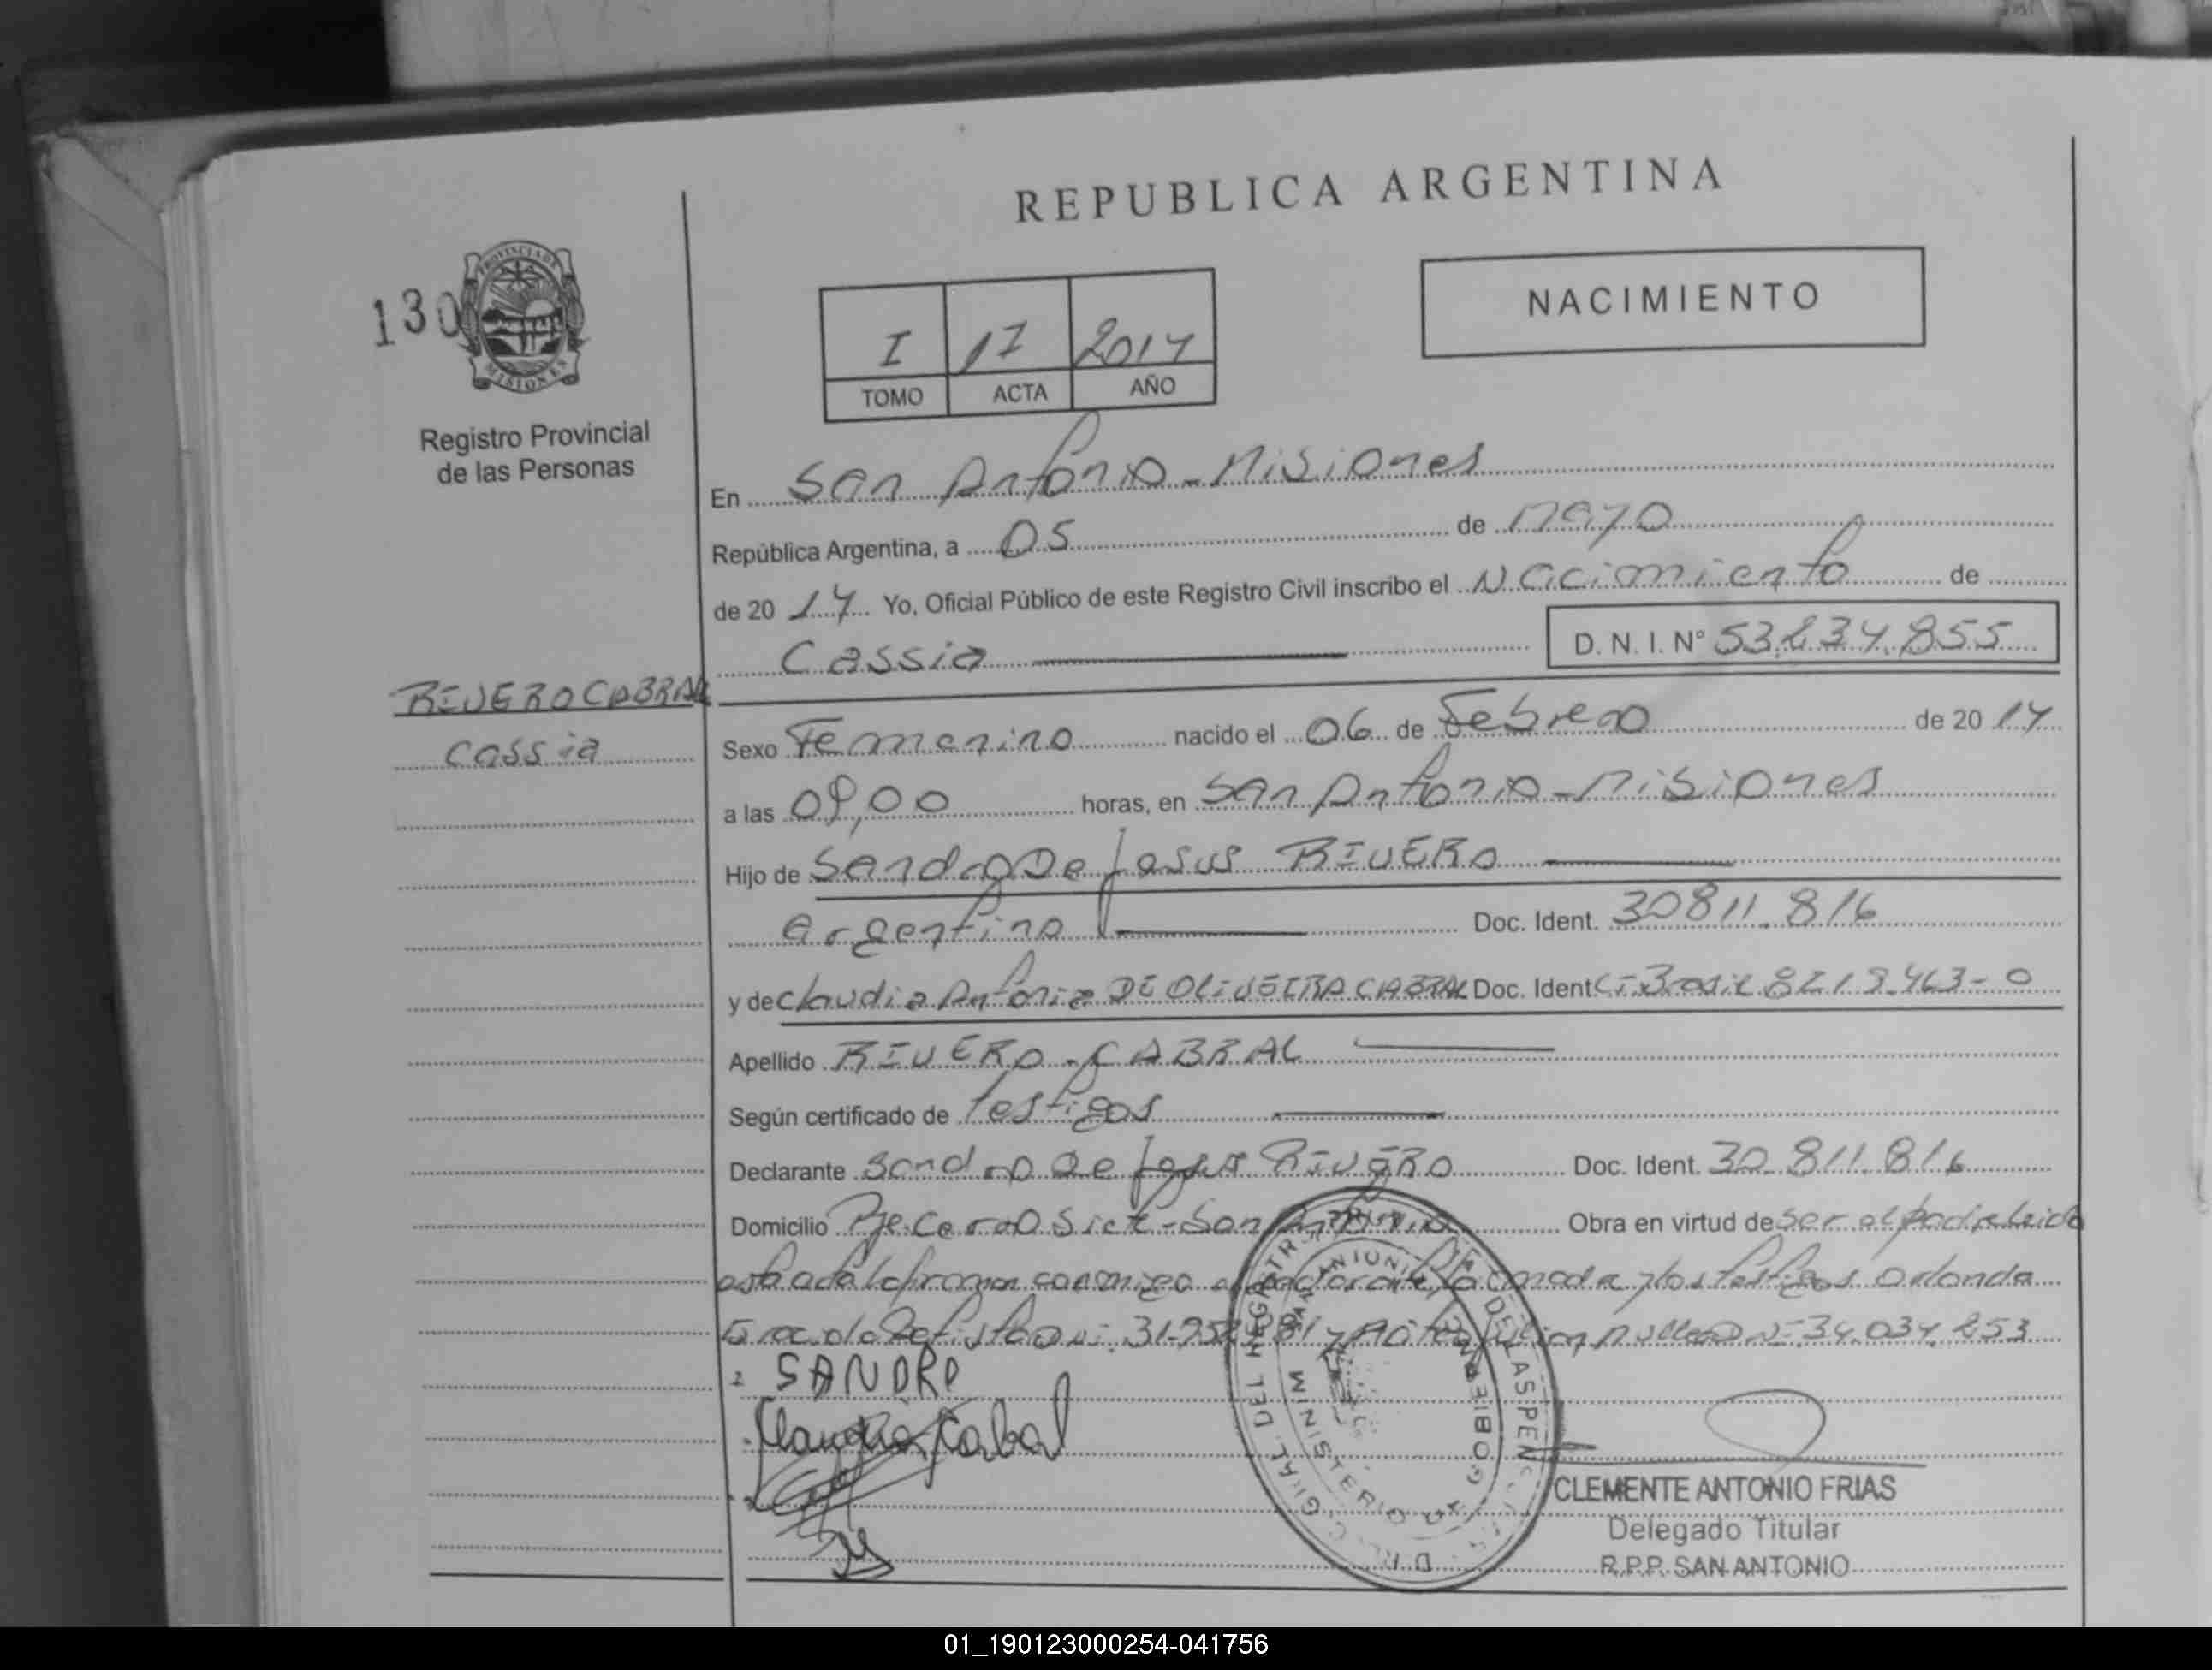 REPUBLICA ARGENTINA
130
PROVINCIA DE
MISIONES
Registro Provincial
de las Personas
I 17 2014
TOMO ACTA AÑO
NACIMIENTO
En San Antonio - Misiones
República Argentina, a 05 de Mayo
de 20 14 Yo, Oficial Público de este Registro Civil inscribo el Nacimiento de
Cassia D. N. I. Nº 53.834.855
RIVERO CABRAL
Cassia
Sexo Femenino nacido el 06 de Febrero de 20 14
a las 09,00 horas, en San Antonio - Misiones
Hijo de Sandro De Jesus RIVERO
argentino Doc. Ident. 30811.816
y de Claudia Antonia DE OLIVEIRA CABRAL Doc. Ident CI Brasil 8219.463-0
Apellido RIVERO - CABRAL
Según certificado de testigos
Declarante Sandro De Jesus RIVERO Doc. Ident. 30.811.816
Domicilio Pje. Cerro Siete - San Antonio Obra en virtud de ser el padre leida
esta acta la firman conmigo el declarante la madre y los testigos
34.034.853
SANDRO
Claudia Cabral
MINISTERIO DE GOBIERNO
CLEMENTE ANTONIO FRIAS
Delegado Titular
R.P.P. SAN ANTONIO
01_190123000254-041756